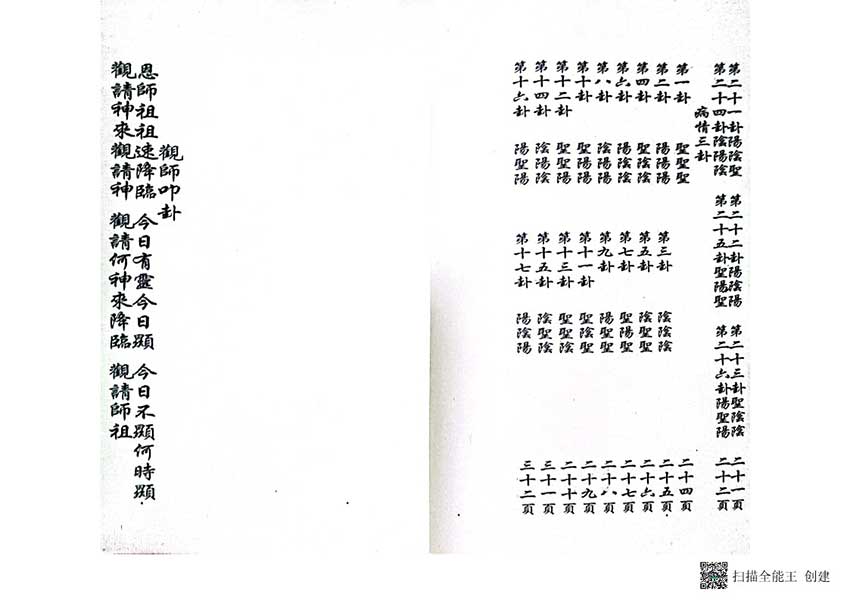 第二十一卦陽陰聖 第二十二卦陽陰陽 第二十三卦聖陰陰 二十一頁
第二十四卦陰陽陰 第二十五卦聖陽聖 第二十六卦陽聖陽 二十二頁
病情三卦
第一卦 聖聖聖 二十四頁
第二卦 陽陽陽 第三卦 陰陰陰 二十五頁
第四卦 聖陽陰 第五卦 陰聖聖 二十六頁
第六卦 陽陽陰 第七卦 聖陽聖 二十七頁
第八卦 陰陽陽 第九卦 陽陽聖 二十八頁
第十卦 聖陽陽 第十一卦 聖陰聖 二十九頁
第十二卦 聖陽陰 第十三卦 聖聖陰 二十十頁
第十四卦 陰陽陰 第十五卦 陰聖陰 三十一頁
第十六卦 陽聖陽 第十七卦 陽陰陽 三十二頁
觀師叩卦
恩師祖祖速降臨 今日有靈今日顯 今日不顯何時顯
觀請神來觀請神 觀請何神來降臨 觀請師祖
扫描全能王 创建